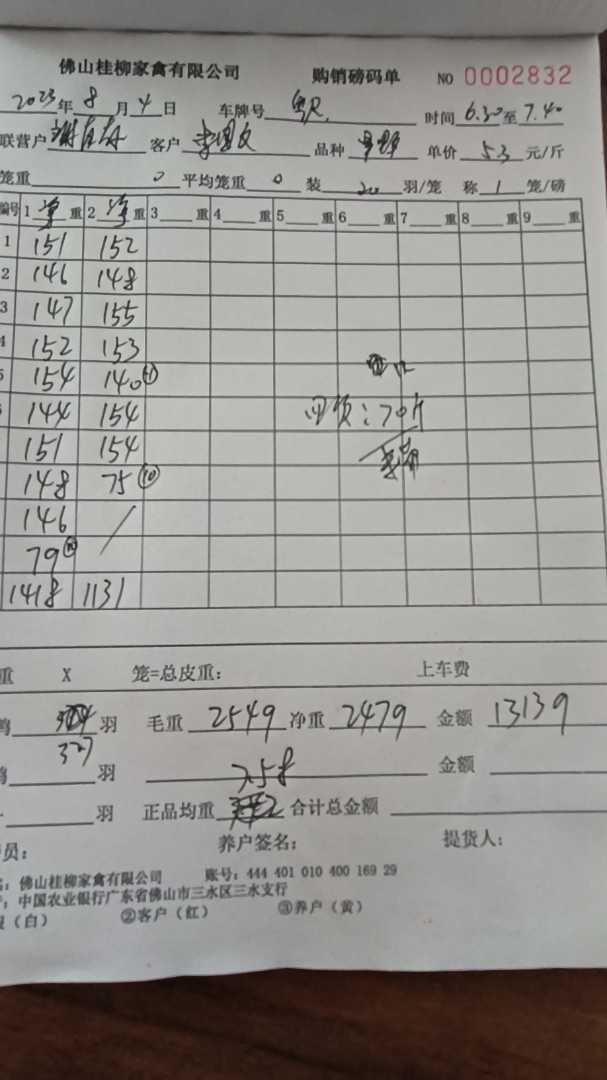 佛山桂柳家禽有限公司 购销磅码单 NO 0002832
2023年 8 月 4 日 车牌号 时间 6.30 至 7.40
联营户 客户 李国文 品种 单价 5.3 元/斤
笼重 0 平均笼重 0 装 20 羽/笼 称 1 笼/磅
编号 1 净 重 2 净 重 3 重 4 重 5 重 6 重 7 重 8 重 9 重
1 151 152
2 146 148
3 147 155
4 152 153
5 154 140
144 154
151 154
148 75 ⑩
146 /
79
1418 1131
回货:70斤
重 X 笼=总皮重: 上车费
鸭 羽 毛重 2549 净重 2479 金额 13139
327
鸭 羽 7.58 金额
羽 正品均重 合计总金额
员: 养户签名: 提货人:
名:佛山桂柳家禽有限公司 账号:444 401 010 400 169 29
中国农业银行广东省佛山市三水区三水支行
(白) ②客户(红) ③养户(黄)